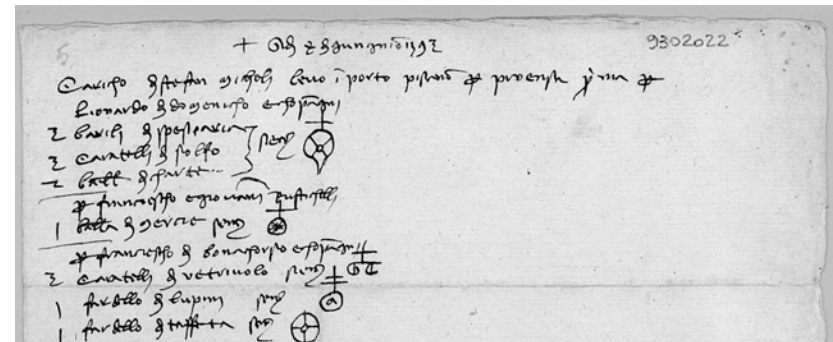 9302022
+ Adì 2 di giungnio 1392
Caricho di stefan micholi levo i porto pisano p proensa p ma p
Lionardo di domenicho e chopangni
2 barili di spesiaria
2 caratelli di solfo sengn
2 balle di charte
p francescho e giovani
1 balla di mercie sengn
p francescho di bonachorso e chopangni
2 caratelli di vetriuolo sengn
1 fardello di lupini sengn
1 fardello di taffeta sengn